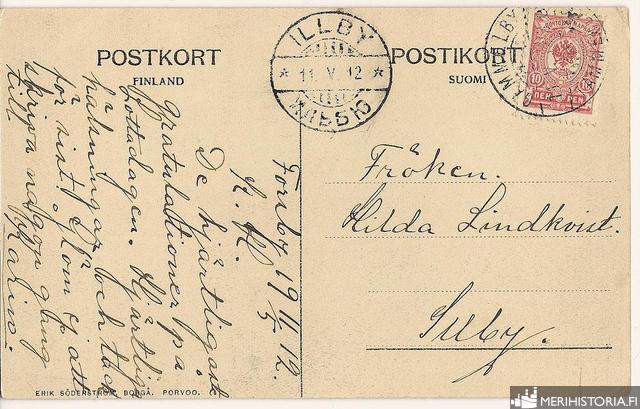 POSTKORT
FINLAND
POSTIKORT
SUOMI
ILLBY
11.V.12
10
10
PEN
Forsby 19 11/5 12.
K. H.
De hjärtligast
gratulationer på
Hjärtlig
hälsningar och tack
för sist. Glöm ej att
skriva någon gång
till Karin.
Fröken.
Hilda Lindkvist.
Illby.
ERIK SÖDERSTRÖM, BORGÅ. PORVOO.
MERIHISTORIA.FI